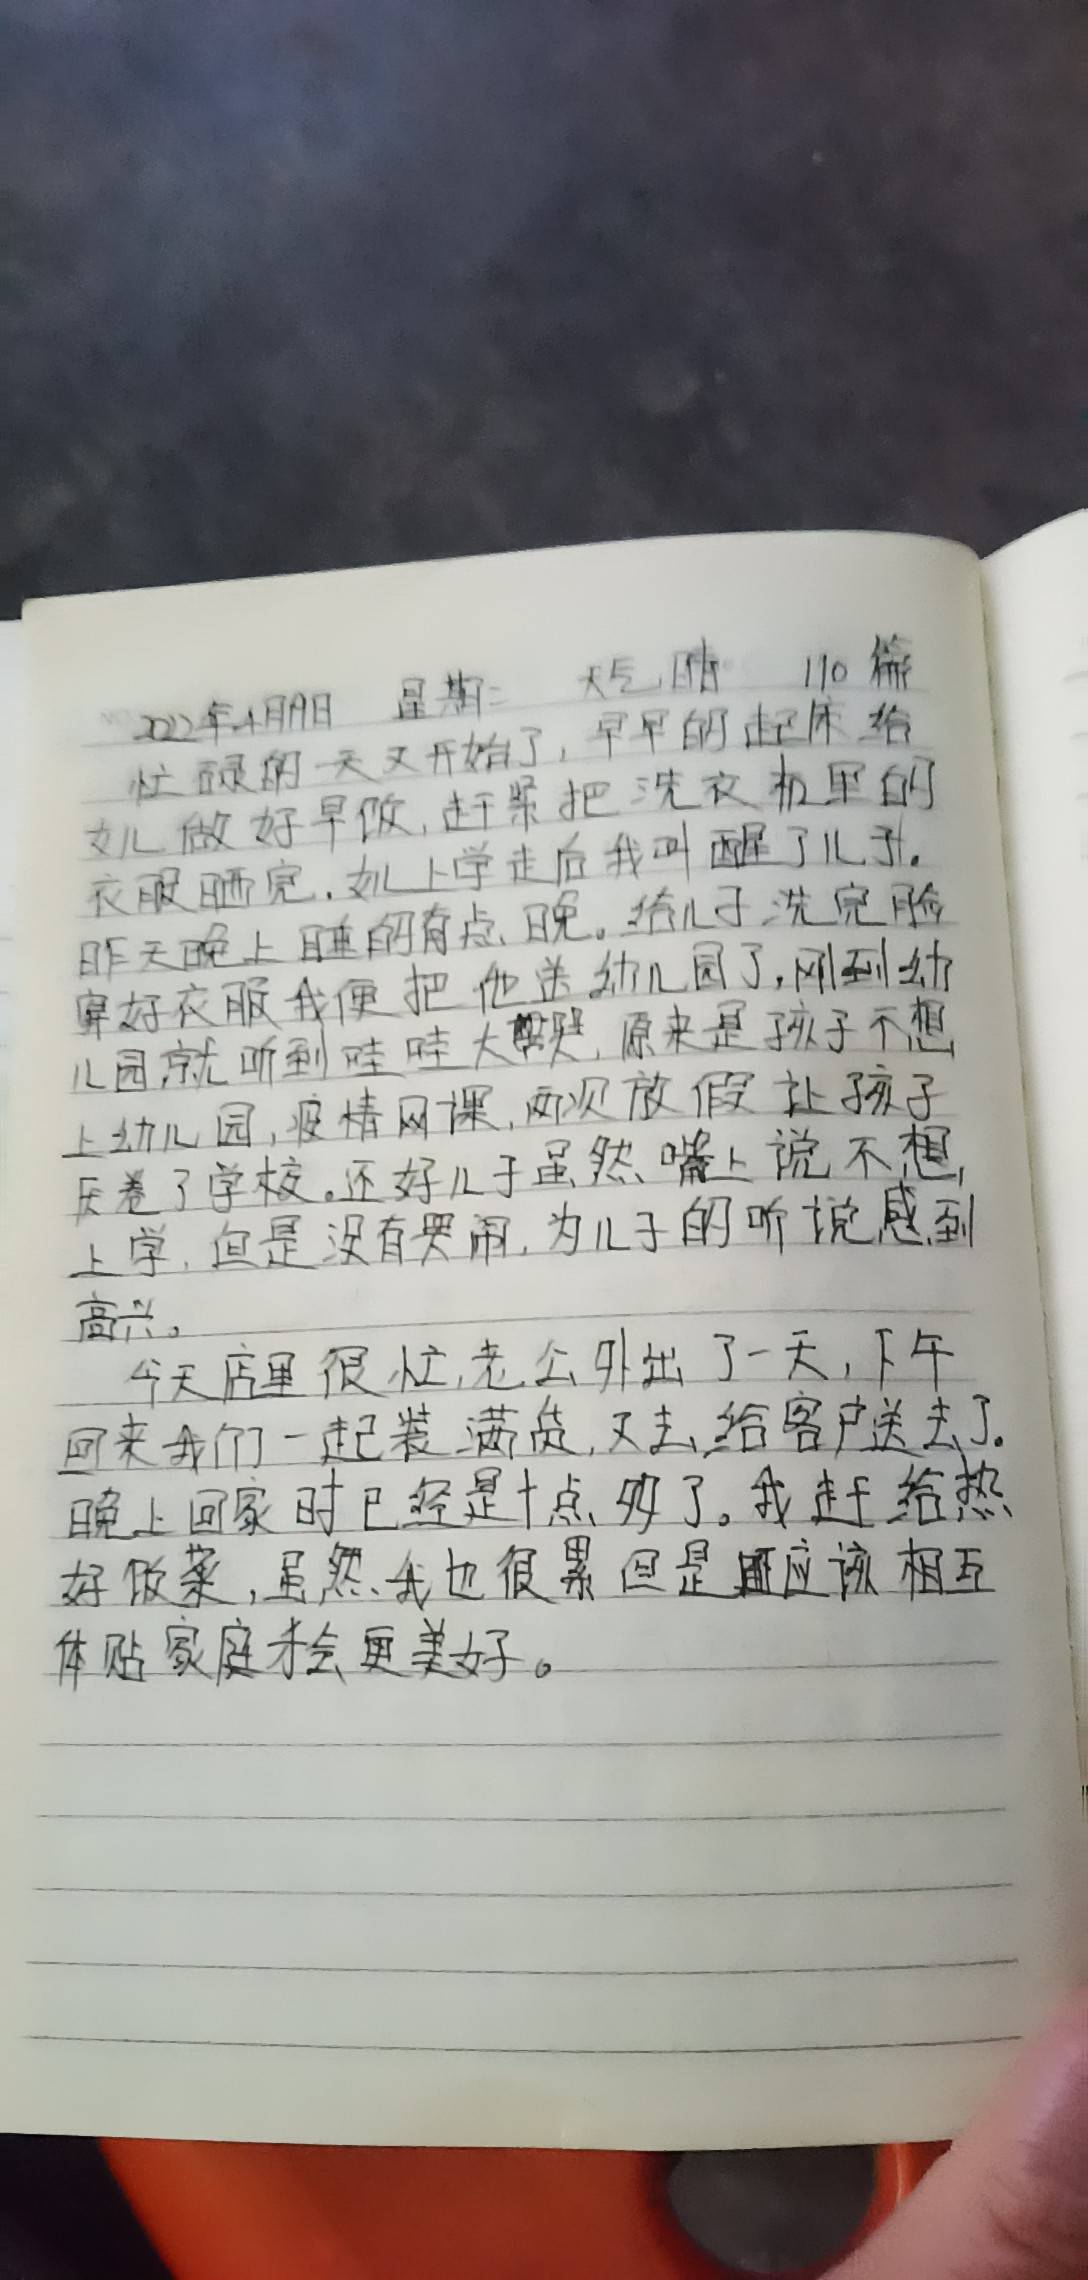 2022年4月19日 星期二 天气晴 110篇
忙碌的一天又开始了,早早的起床给
女儿做好早饭,赶紧把洗衣机里的
衣服晒完.女儿上学走后我叫醒了儿子.
昨天晚上睡的有点晚。给儿子洗完脸
穿好衣服我便把他送幼儿园了,刚到幼
儿园就听到哇哇大哭,原来是孩子不想
上幼儿园,疫情网课,两次放假让孩子
厌卷了学校。还好儿子虽然嘴上说不想
上学,但是没有哭闹,为儿子的听说感到
高兴。
今天店里很忙,老公外出了一天,下午
回来我们一起装满货,又去给客户送去了.
晚上回家时已经是十点多了。我赶给热
好饭菜,虽然我也很累但是应该相互
体贴家庭才会更美好。